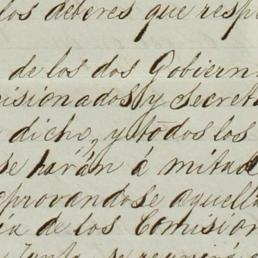 los deberes que resp
de los dos Gobiern
isionados y secret
dicho, y todos los
se harán á mitad
aprovandose aquella
ia de los Comision
Junta, se reunirá